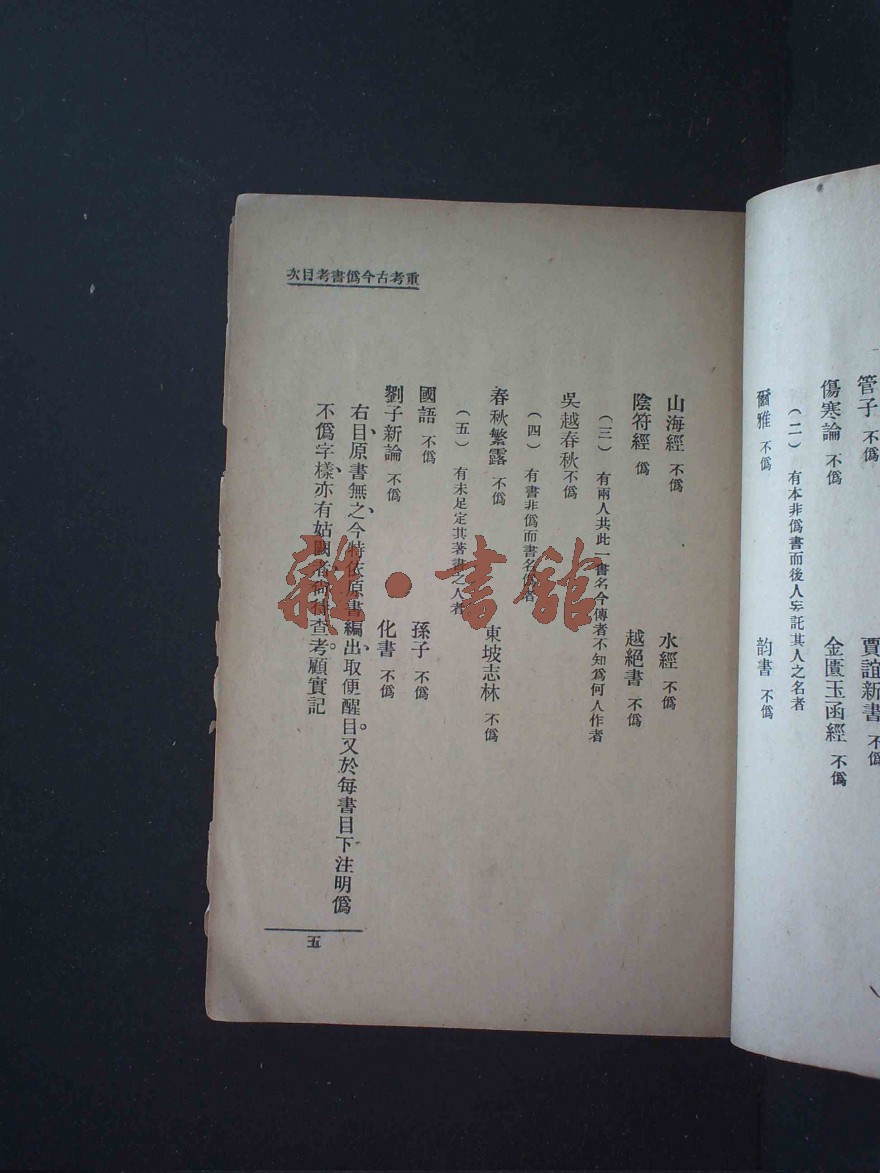 管子 不僞
賈誼新書 不僞
傷寒論 不僞
金匱玉函經 不僞
（二） 有本非僞書而後人妄託其人之名者
爾雅 不僞
韵書 不僞
重考古今僞書考目次
山海經 不僞
水經 不僞
陰符經 僞
越絕書 不僞
（三） 有兩人共此一書名今傳者不知爲何人作者
吳越春秋 不僞
（四） 有書非僞而書名僞者
春秋繁露 不僞
東坡志林 不僞
（五） 有未足定其著書之人者
國語 不僞
孫子 不僞
劉子新論 不僞
化書 不僞
右目、原書無之、今特依原書編出、取便醒目。又於每書目下注明僞
不僞字樣、亦有姑闕者、尚待查考。顧實記
五
雜·書館